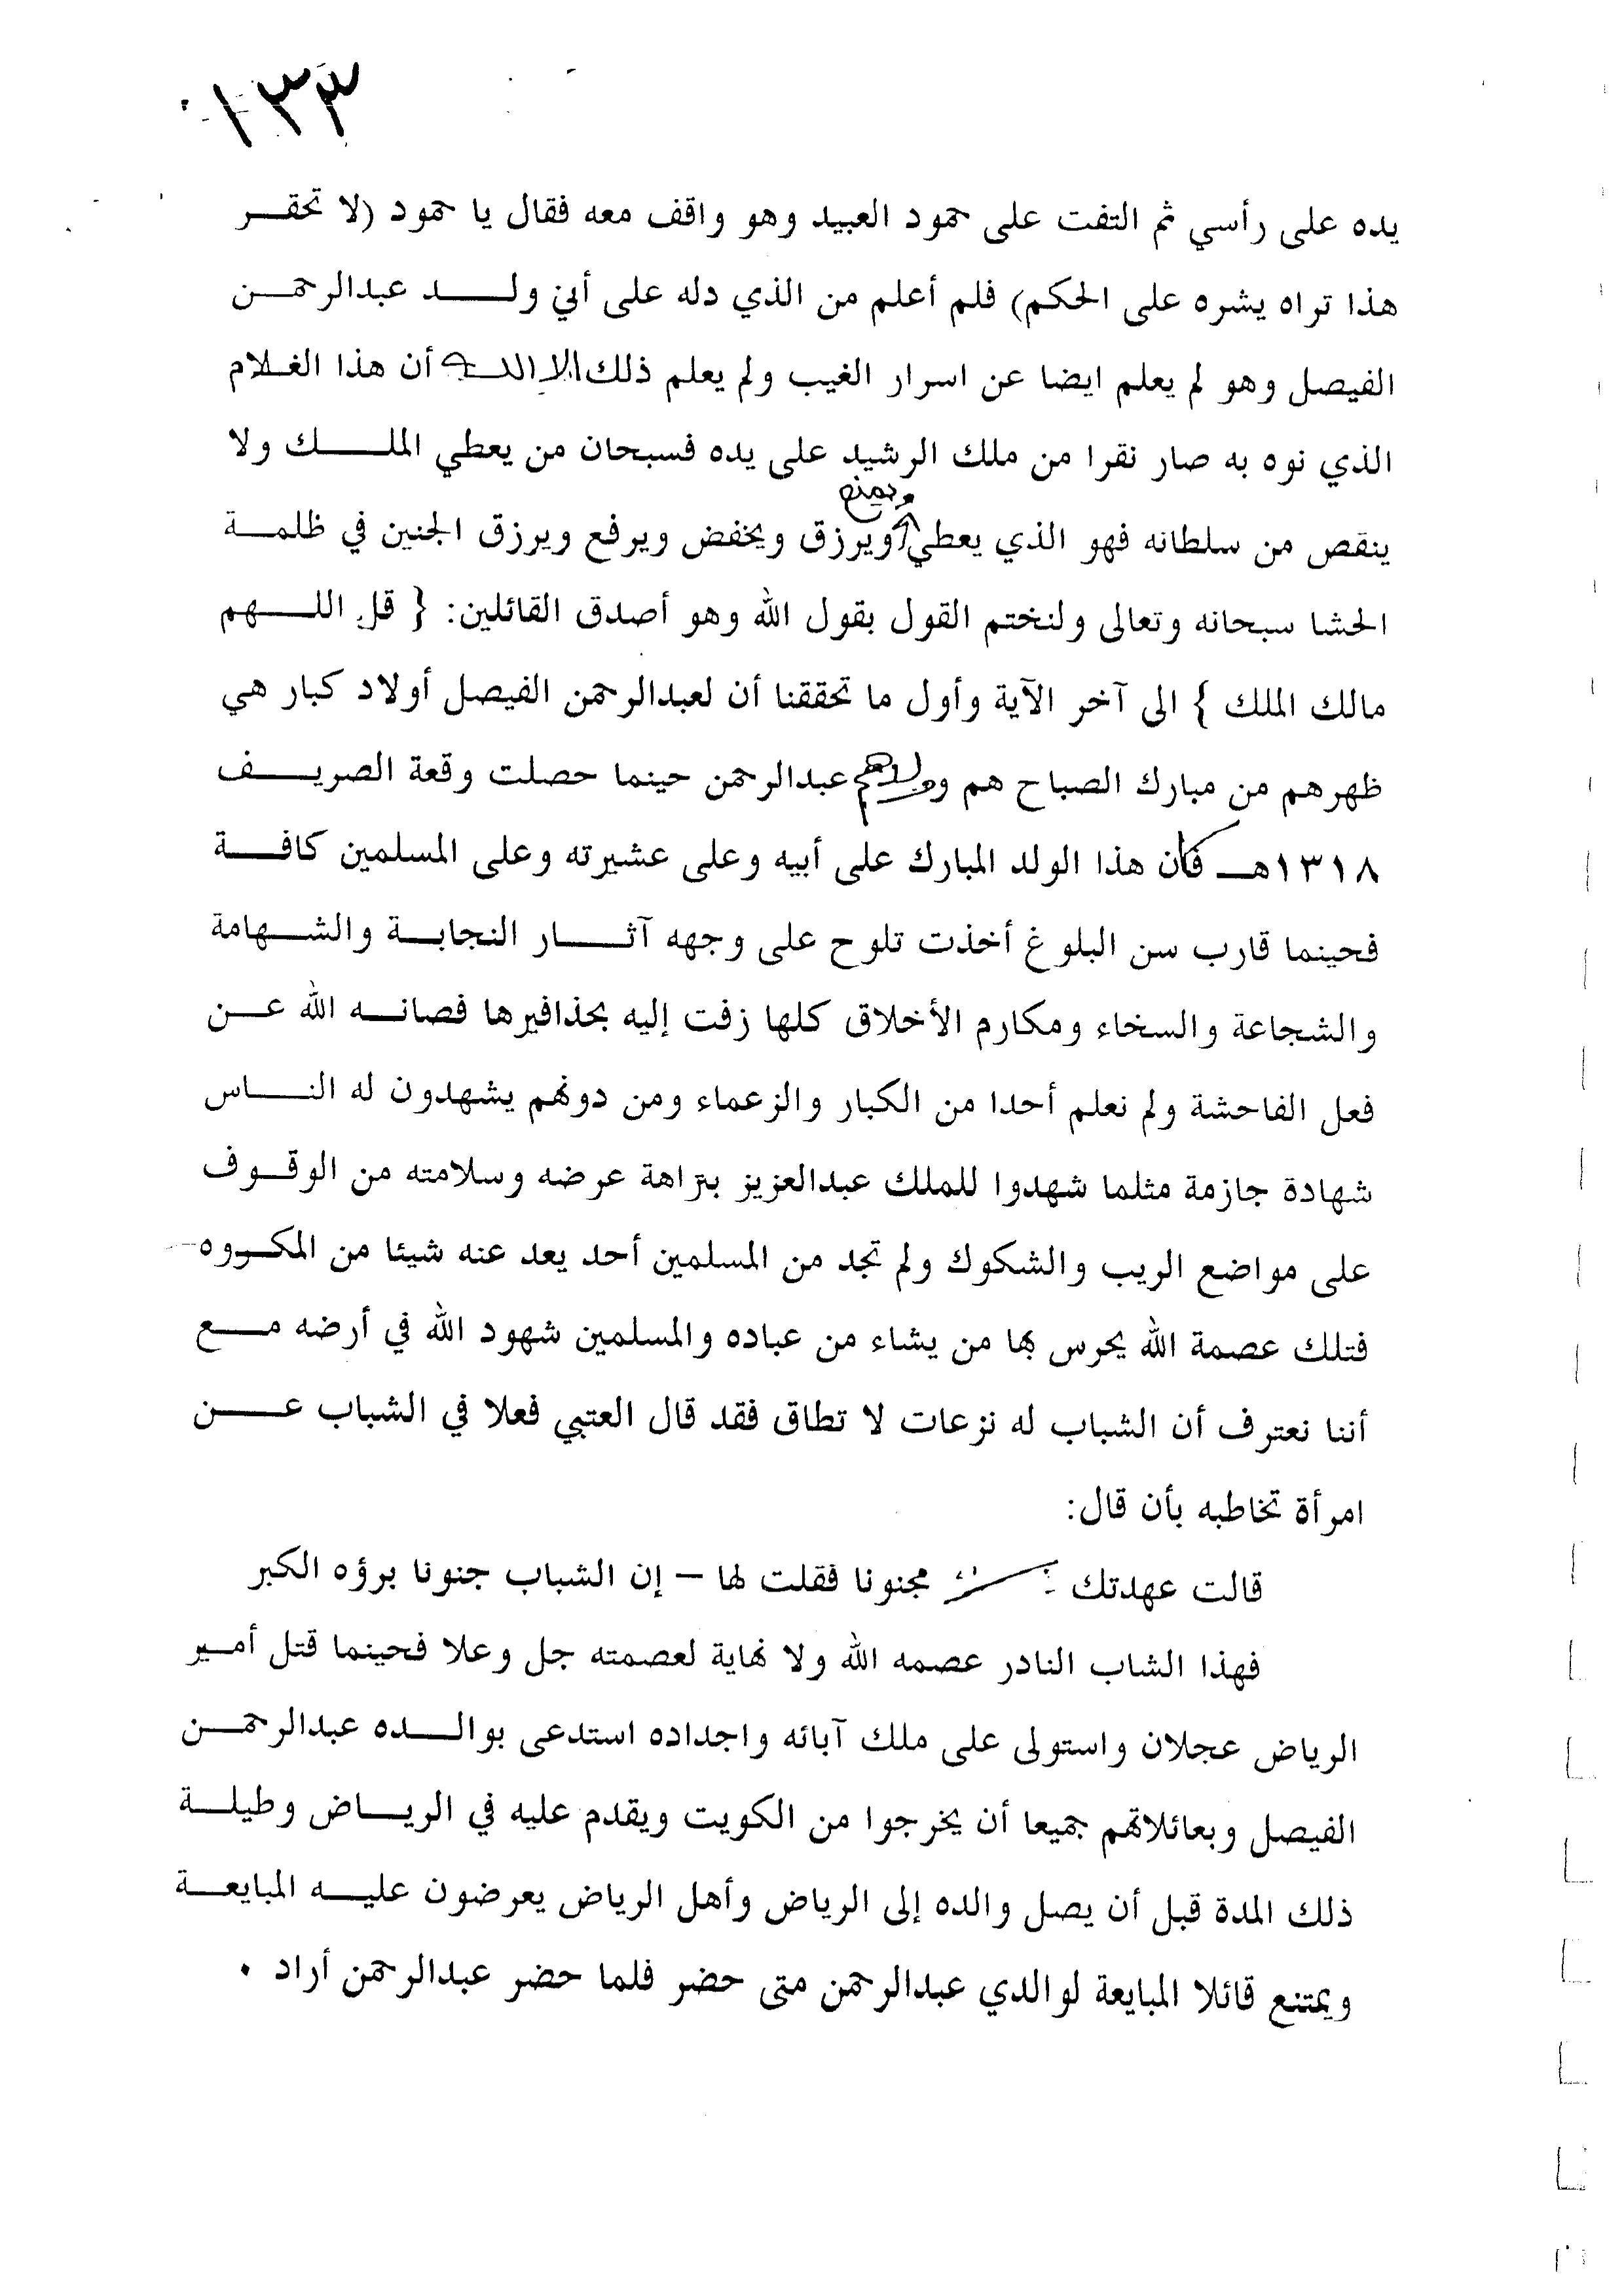 ١٣٣
يده على رأسي ثم التفت على حمود العبيد وهو واقف معه فقال يا حمود (لا تحقر
هذا تراه يشره على الحكم) فلم أعلم من الذي دله على أني ولد عبدالرحمن
الفيصل وهو لم يعلم ايضا عن اسرار الغيب ولم يعلم ذلك الا الله أن هذا الغلام
الذي نوه به صار نقرا من ملك الرشيد على يده فسبحان من يعطي الملك ولا
ويمنع
ينقص من سلطانه فهو الذي يعطي ويرزق ويخفض ويرفع ويرزق الجنين في ظلمة
الحشا سبحانه وتعالى ولنختم القول بقول الله وهو أصدق القائلين: { قل اللهم
مالك الملك } الى آخر الآية وأول ما تحققنا أن لعبدالرحمن الفيصل أولاد كبار هي
ظهرهم من مبارك الصباح هم عبدالرحمن حينما حصلت وقعة الصريف
١٣١٨هـ فكان هذا الولد المبارك على أبيه وعلى عشيرته وعلى المسلمين كافة
فحينما قارب سن البلوغ أخذت تلوح على وجهه آثار النجابة والشهامة
والشجاعة والسخاء ومكارم الأخلاق كلها زفت إليه بحذافيرها فصانه الله عن
فعل الفاحشة ولم نعلم أحدا من الكبار والزعماء ومن دونهم يشهدون له الناس
شهادة جازمة مثلما شهدوا للملك عبدالعزيز بتراهة عرضه وسلامته من الوقوف
على مواضع الريب والشكوك ولم تجد من المسلمين أحد يعد عنه شيئا من المكروه
فتلك عصمة الله يحرس بها من يشاء من عباده والمسلمين شهود الله في أرضه مع
أننا نعترف أن الشباب له نزعات لا تطاق فقد قال العتبي فعلا في الشباب عن
امرأة تخاطبه بأن قال:
قالت عهدتك مجنونا فقلت لها – إن الشباب جنونا برؤه الكبر
فهذا الشاب النادر عصمه الله ولا نهاية لعصمته جل وعلا فحينما قتل أمير
الرياض عجلان واستولى على ملك آبائه واجداده استدعى بوالده عبدالرحمن
الفيصل وبعائلاتهم جميعا أن يخرجوا من الكويت ويقدم عليه في الرياض وطيلة
ذلك المدة قبل أن يصل والده إلى الرياض وأهل الرياض يعرضون عليه المبايعة
ويمتنع قائلا المبايعة لوالدي عبدالرحمن متى حضر فلما حضر عبدالرحمن أراد .